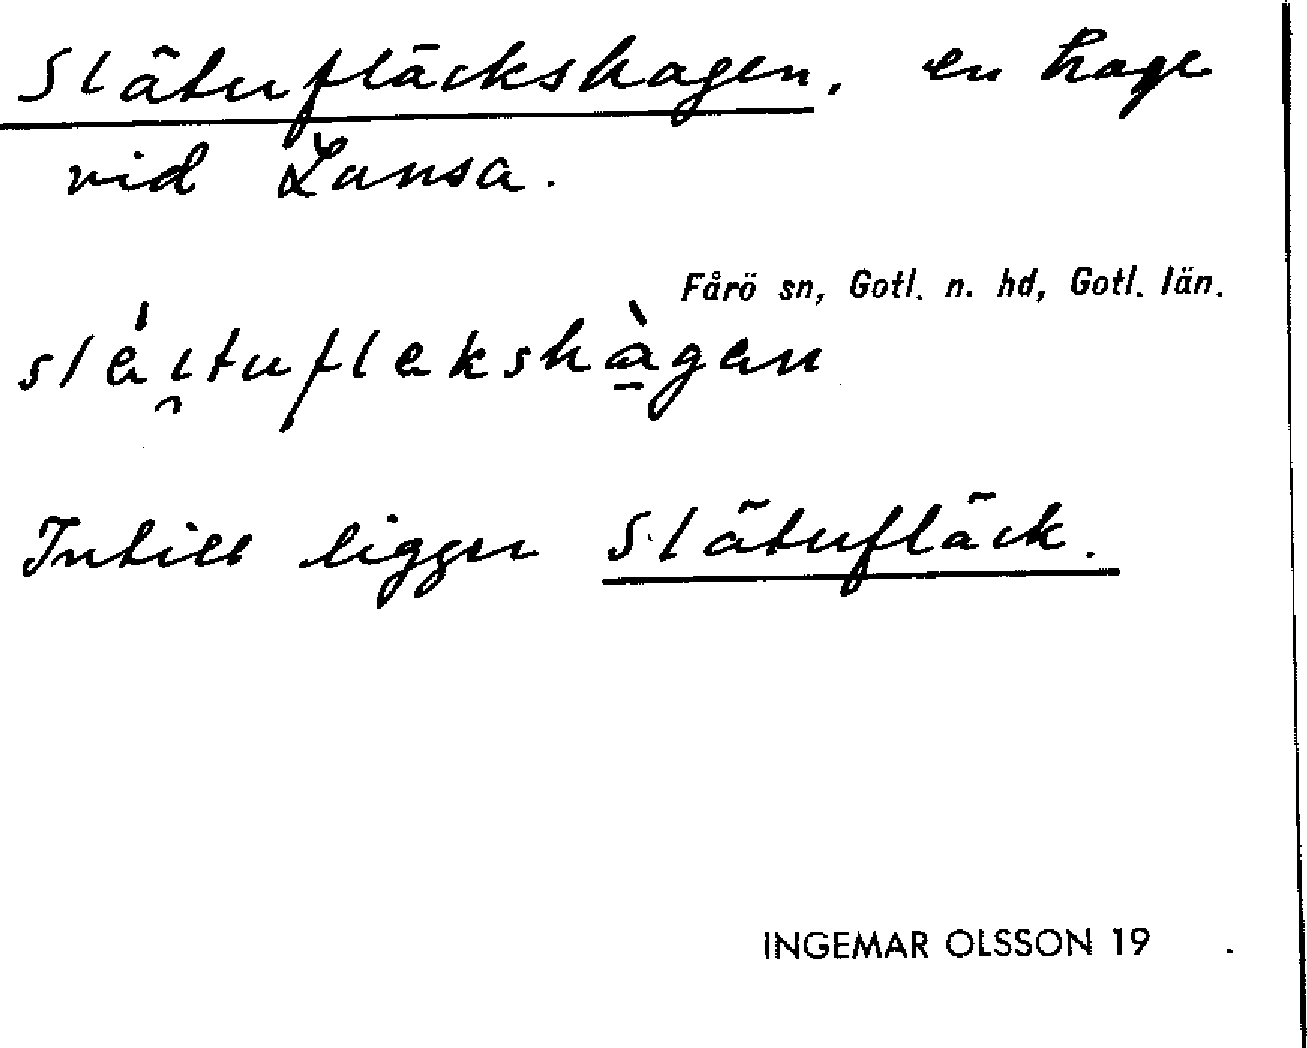 Slätufläckshagen, en hage
vid Lansa.
Fårö sn, Gotl. n. hd, Gotl. län.
Intill ligger Slätufläck.
INGEMAR OLSSON 19